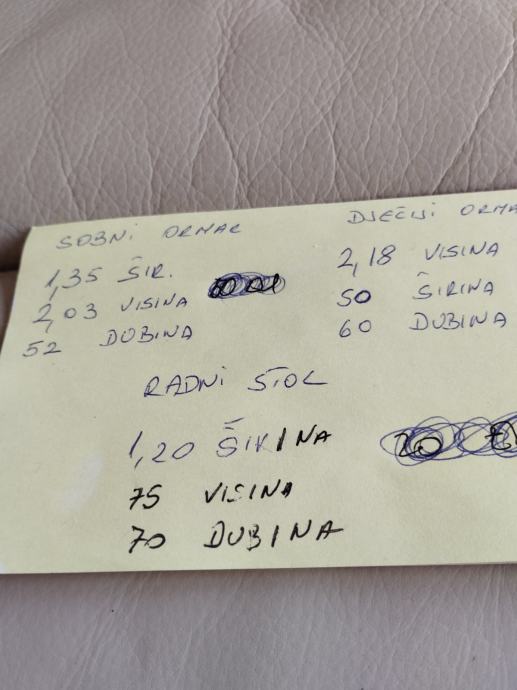 SOBNI ORMAR
1,35 ŠIR.
2,03 VISINA
52 DUBINA
DJEČIJI ORMA
2,18 VISINA
50 ŠIRINA
60 DUBINA
RADNI STOL
1,20 ŠIRINA
75 VISINA
70 DUBINA